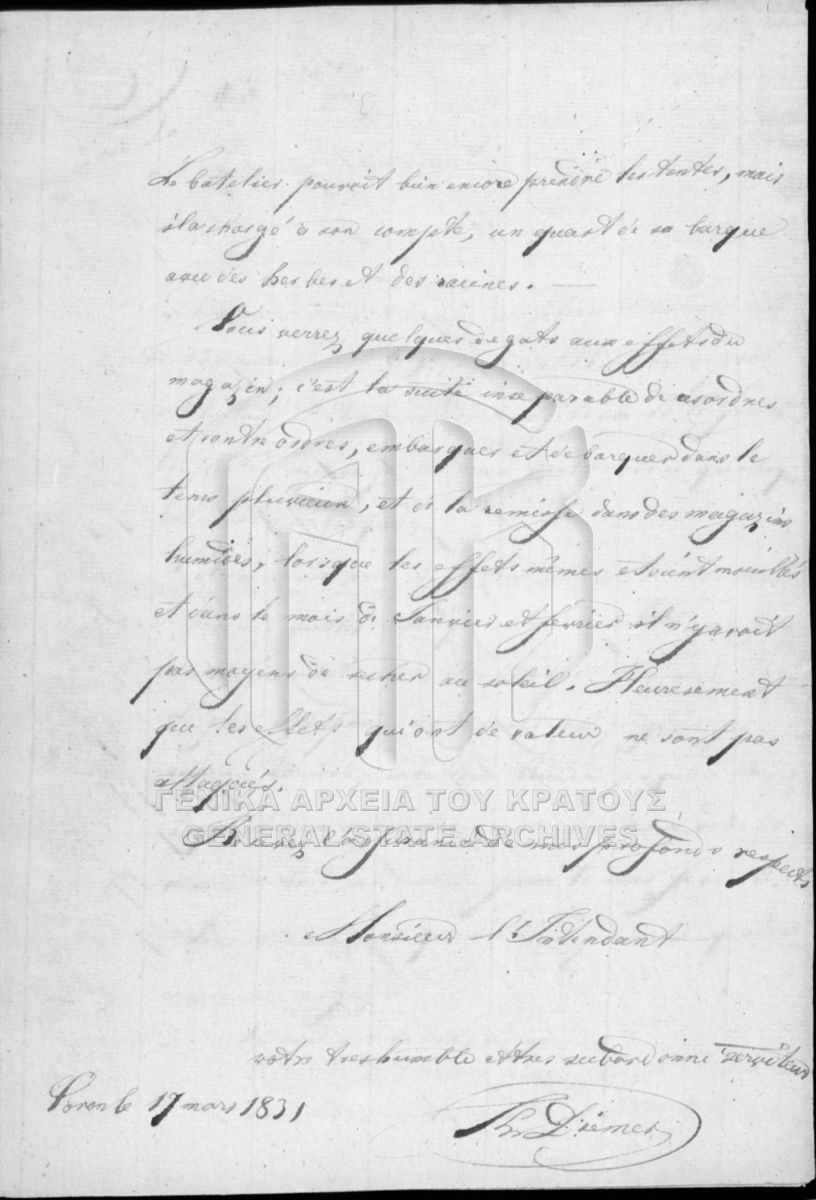 Le batelier pouvait bien encore prendre les tentes, mais
il a chargé à son compte, un quart de sa barque
avec des herbes et des racines. —
Vous verrez quelques degats aux effets du
magazin; c'est la suite inseparable de asordres
et contre ordres, embarquer et débarquer dans le
tems pluvieux, et de la remise dans des magazins
humides, lorsque les effets mêmes etoient mouillés
et dans le mois de Janvier et fevrier il n'y avoit
pas moyens de secher au soleil. Heuresement
que les effets qui ont de valeur ne sont pas
attaqués.
ΓΕΝΙΚΑ ΑΡΧΕΙΑ ΤΟΥ ΚΡΑΤΟΥΣ
GENERAL STATE ARCHIVES
l'assurance de mes profonds respects
Monsieur l'Intendant
votre tres humble et tres subordonné serviteur
Coron le 17 mars 1831